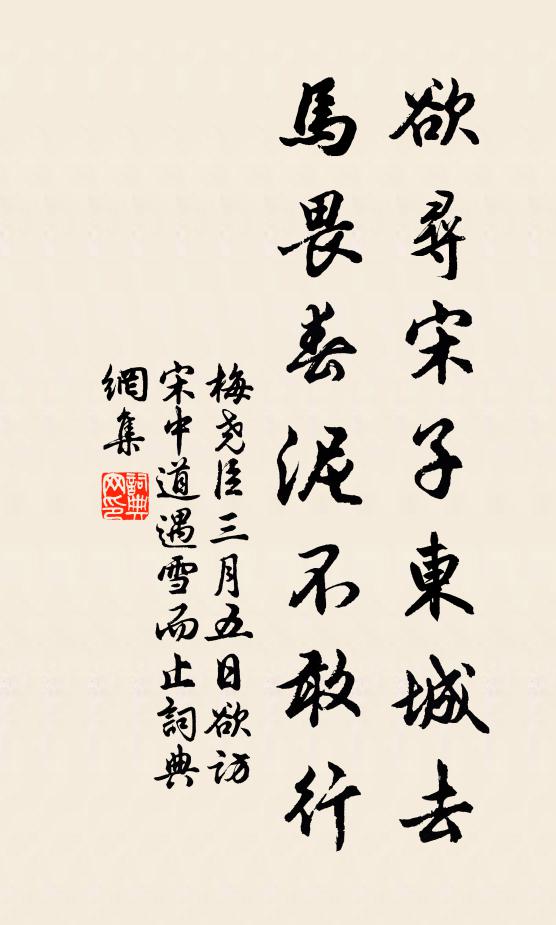 欲尋宋子東城去
馬畏春泥不敢行
梅堯臣三月五日欲訪
宋中道遇雪而止詞典
網集
詞典
网印